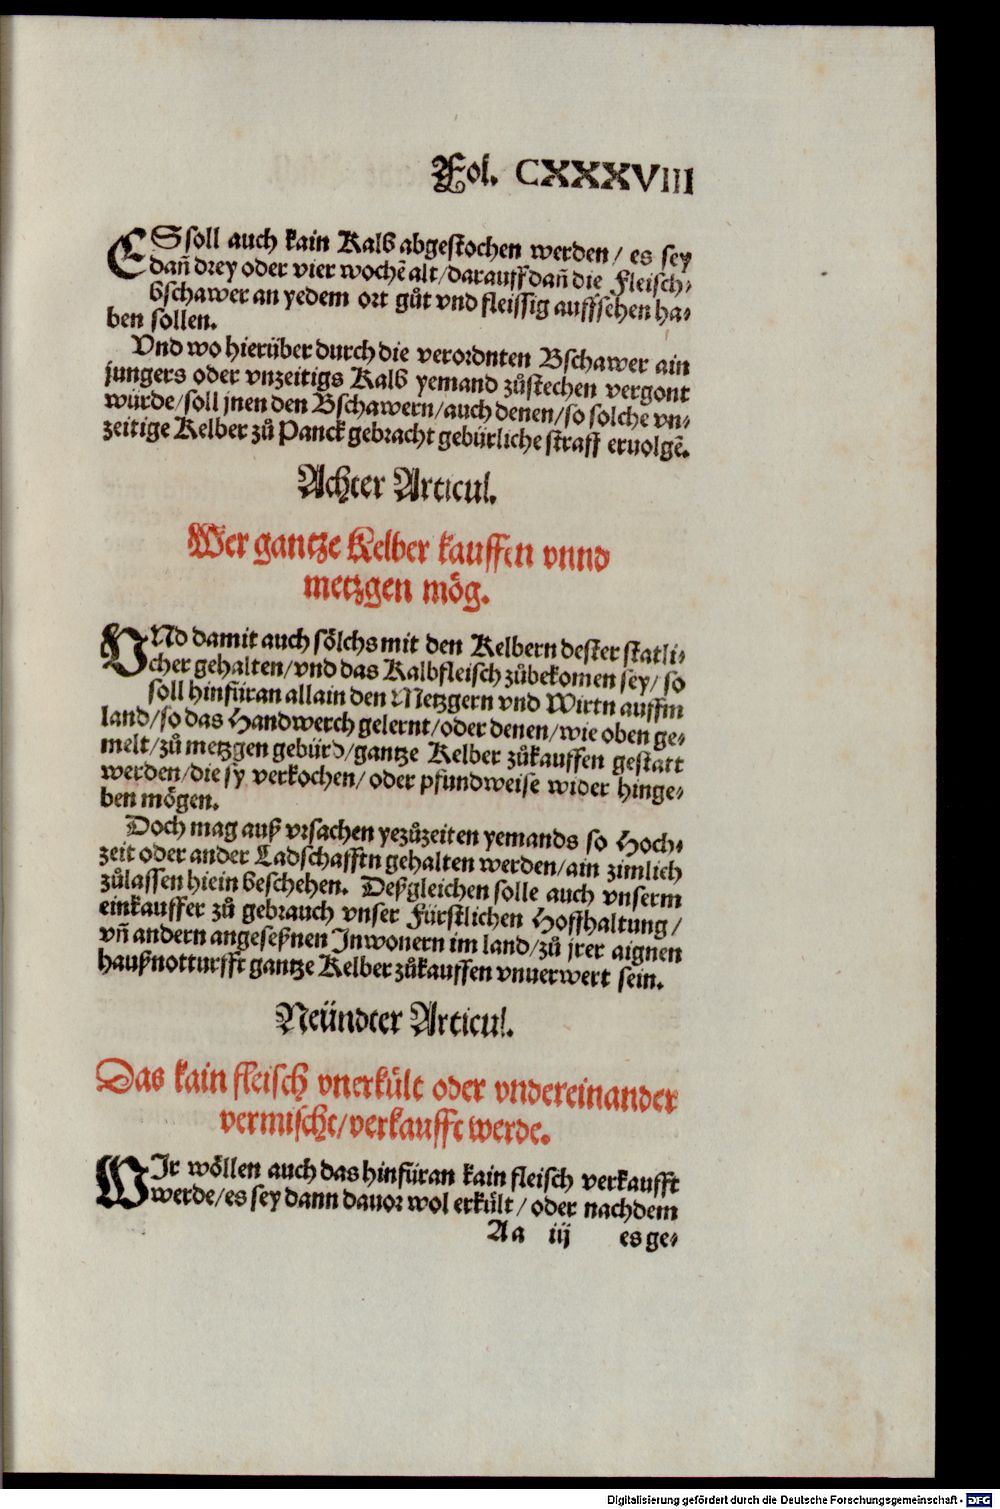 Fol. CXXXVIII
ES soll auch kain Kalb abgestochen werden / es sey
dañ drey oder vier wochē alt / darauff dañ die Fleisch⸗
bschawer an yedem ort gůt vnd fleissig auffsehen ha⸗
ben sollen.
Vnd wo hierüber durch die verordnten Bschawer ain
jungers oder vnzeitigs Kalb yemand zůstechen vergont
würde / soll jnen den Bschawern / auch denen / so solche vn⸗
zeitige Kelber zů Panck gebracht gebürliche straff eruolgē.
Achter Articul.
Wer gantze Kelber kauffen vnnd
metzgen mög.
VNd damit auch sölchs mit den Kelbern dester statli⸗
cher gehalten / vnd das Kalbfleisch zůbekomen sey / so
soll hinfüran allain den Metzgern vnd Wirtn auffm
land / so das Handwerch gelernt / oder denen / wie oben ge⸗
melt / zů metzgen gebürd / gantze Kelber zůkauffen gestatt
werden / die sy verkochen / oder pfundweise wider hinge⸗
ben mögen.
Doch mag auß vrsachen yezůzeiten yemands so Hoch⸗
zeit oder ander Ladschafftn gehalten werden / ain zimlich
zůlassen hiein beschehen. Deßgleichen solle auch vnserm
einkauffer zů gebrauch vnser Fürstlichen Hoffhaltung /
vñ andern angeseßnen Jnwonern im land / zů jrer aignen
haußnotturfft gantze Kelber zůkauffen vnuerwert sein.
Neündter Articul.
Das kain fleisch vnerkült oder vndereinander
vermischt / verkaufft werde.
WJr wöllen auch das hinfüran kain fleisch verkaufft
werde / es sey dann dauor wol erkült / oder nachdem
Aa iij es ge⸗
Digitalisierung gefördert durch die Deutsche Forschungsgemeinschaft - DFG